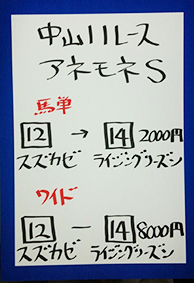 中山11レース
アネモネS
馬単
12 → 14 2000円
スズカゼ ライジングリーズン
ワイド
12 ー 14 8000円
スズカゼ ライジングリーズン